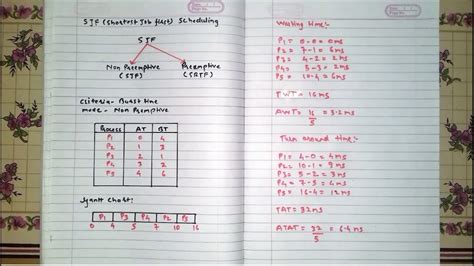 SJF (Shortest Job first) Scheduling
SJF
Non Preemptive
(SJF)
Preemptive
(SRTF)
Criteria - Burst time
mode - Non Preemptive
Process AT BT
P1 0 4
P2 1 3
P3 2 1
P4 3 2
P5 4 6
Gantt Chart:
P1 P3 P4 P2 P5
0 4 5 7 10 16
Waiting time:-
P1 = 0-0 = 0ms
P2 = 7-1 = 6ms
P3 = 4-2 = 2ms
P4 = 5-3 = 2ms
P5 = 10-4 = 6ms
TWT = 16ms
AWT = 16/5 = 3.2ms
Turn around time:-
P1 = 4-0 = 4ms
P2 = 10-1 = 9ms
P3 = 5-2 = 3ms
P4 = 7-5 = 4ms
P5 = 16-4 = 12ms
TAT = 32ms
ATAT = 32/5 = 6.4ms